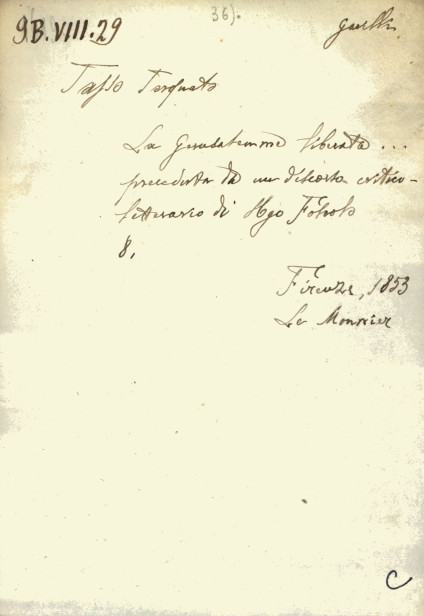 36).
9B.VIII.29
Tasso Torquato
La Gerusalemme liberata ...
preceduta da un discorso critico-
letterario di Ugo Foscolo
8,
Firenze, 1853
Le Monnier
C